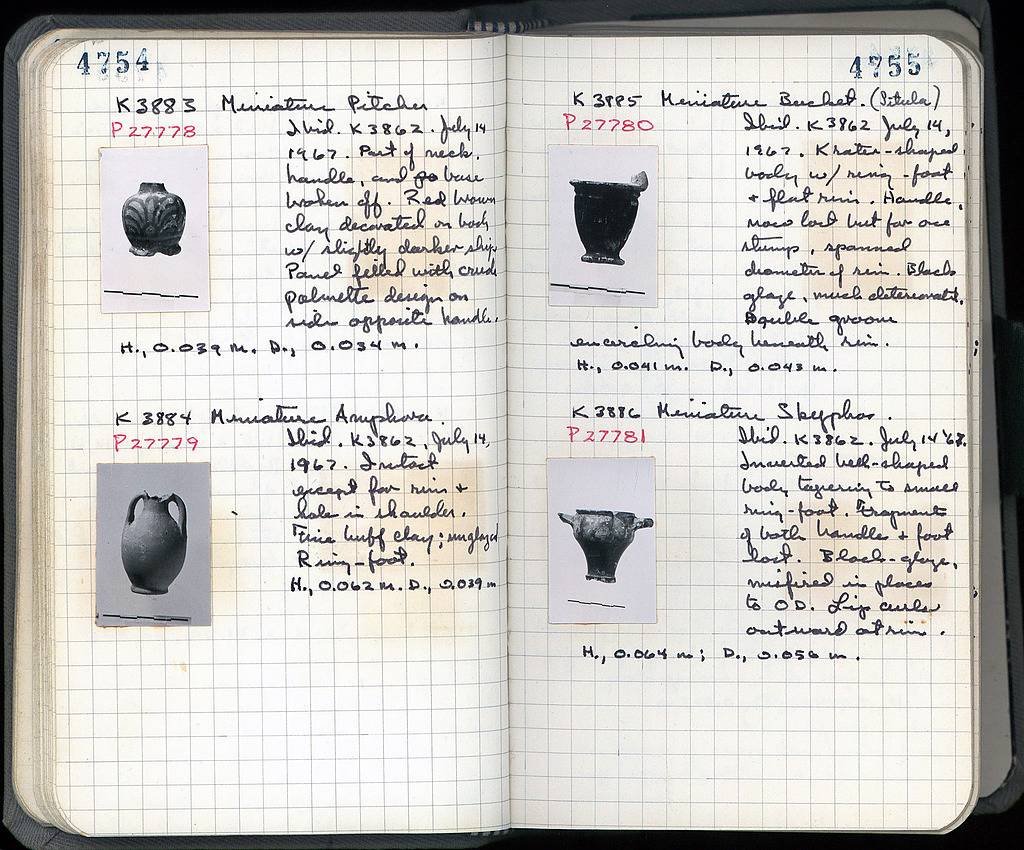 4754
K 3883 Miniature Pitcher
P 27778
Ibid. K3862. July 14
1967. Part of neck,
handle, and base
broken off. Red brown
clay decorated on body
w/ slightly darker slip.
Panel filled with crude
palmette design on
side opposite handle.
H., 0.039 m. D., 0.034 m.
K 3884 Miniature Amphora.
P 27779
Ibid. K3862, July 14,
1967. Intact
except for rim +
hole in shoulder.
Fine buff clay; unglazed
Ring-foot.
H., 0.062 m. D., 0.039 m
4755
K 3885 Miniature Bucket. (Situla)
P 27780
Ibid. K 3862 July 14,
1967. Krater-shaped
body w/ ring-foot
+ flat rim. Handle,
now lost but for one
stump, spanned
diameter of rim. Black
glaze, much deteriorated.
Double groove
encircling body beneath rim.
H., 0.041 m. D., 0.043 m.
K 3886 Miniature Skyphos.
P 27781
Ibid. K3862. July 14 '67.
Inverted bell-shaped
body tapering to small
ring-foot. Fragments
of both handles + foot
lost. Black-glaze,
misfired in places
to OD. Lip curls
outward at rim.
H., 0.064 m; D., 0.056 m.